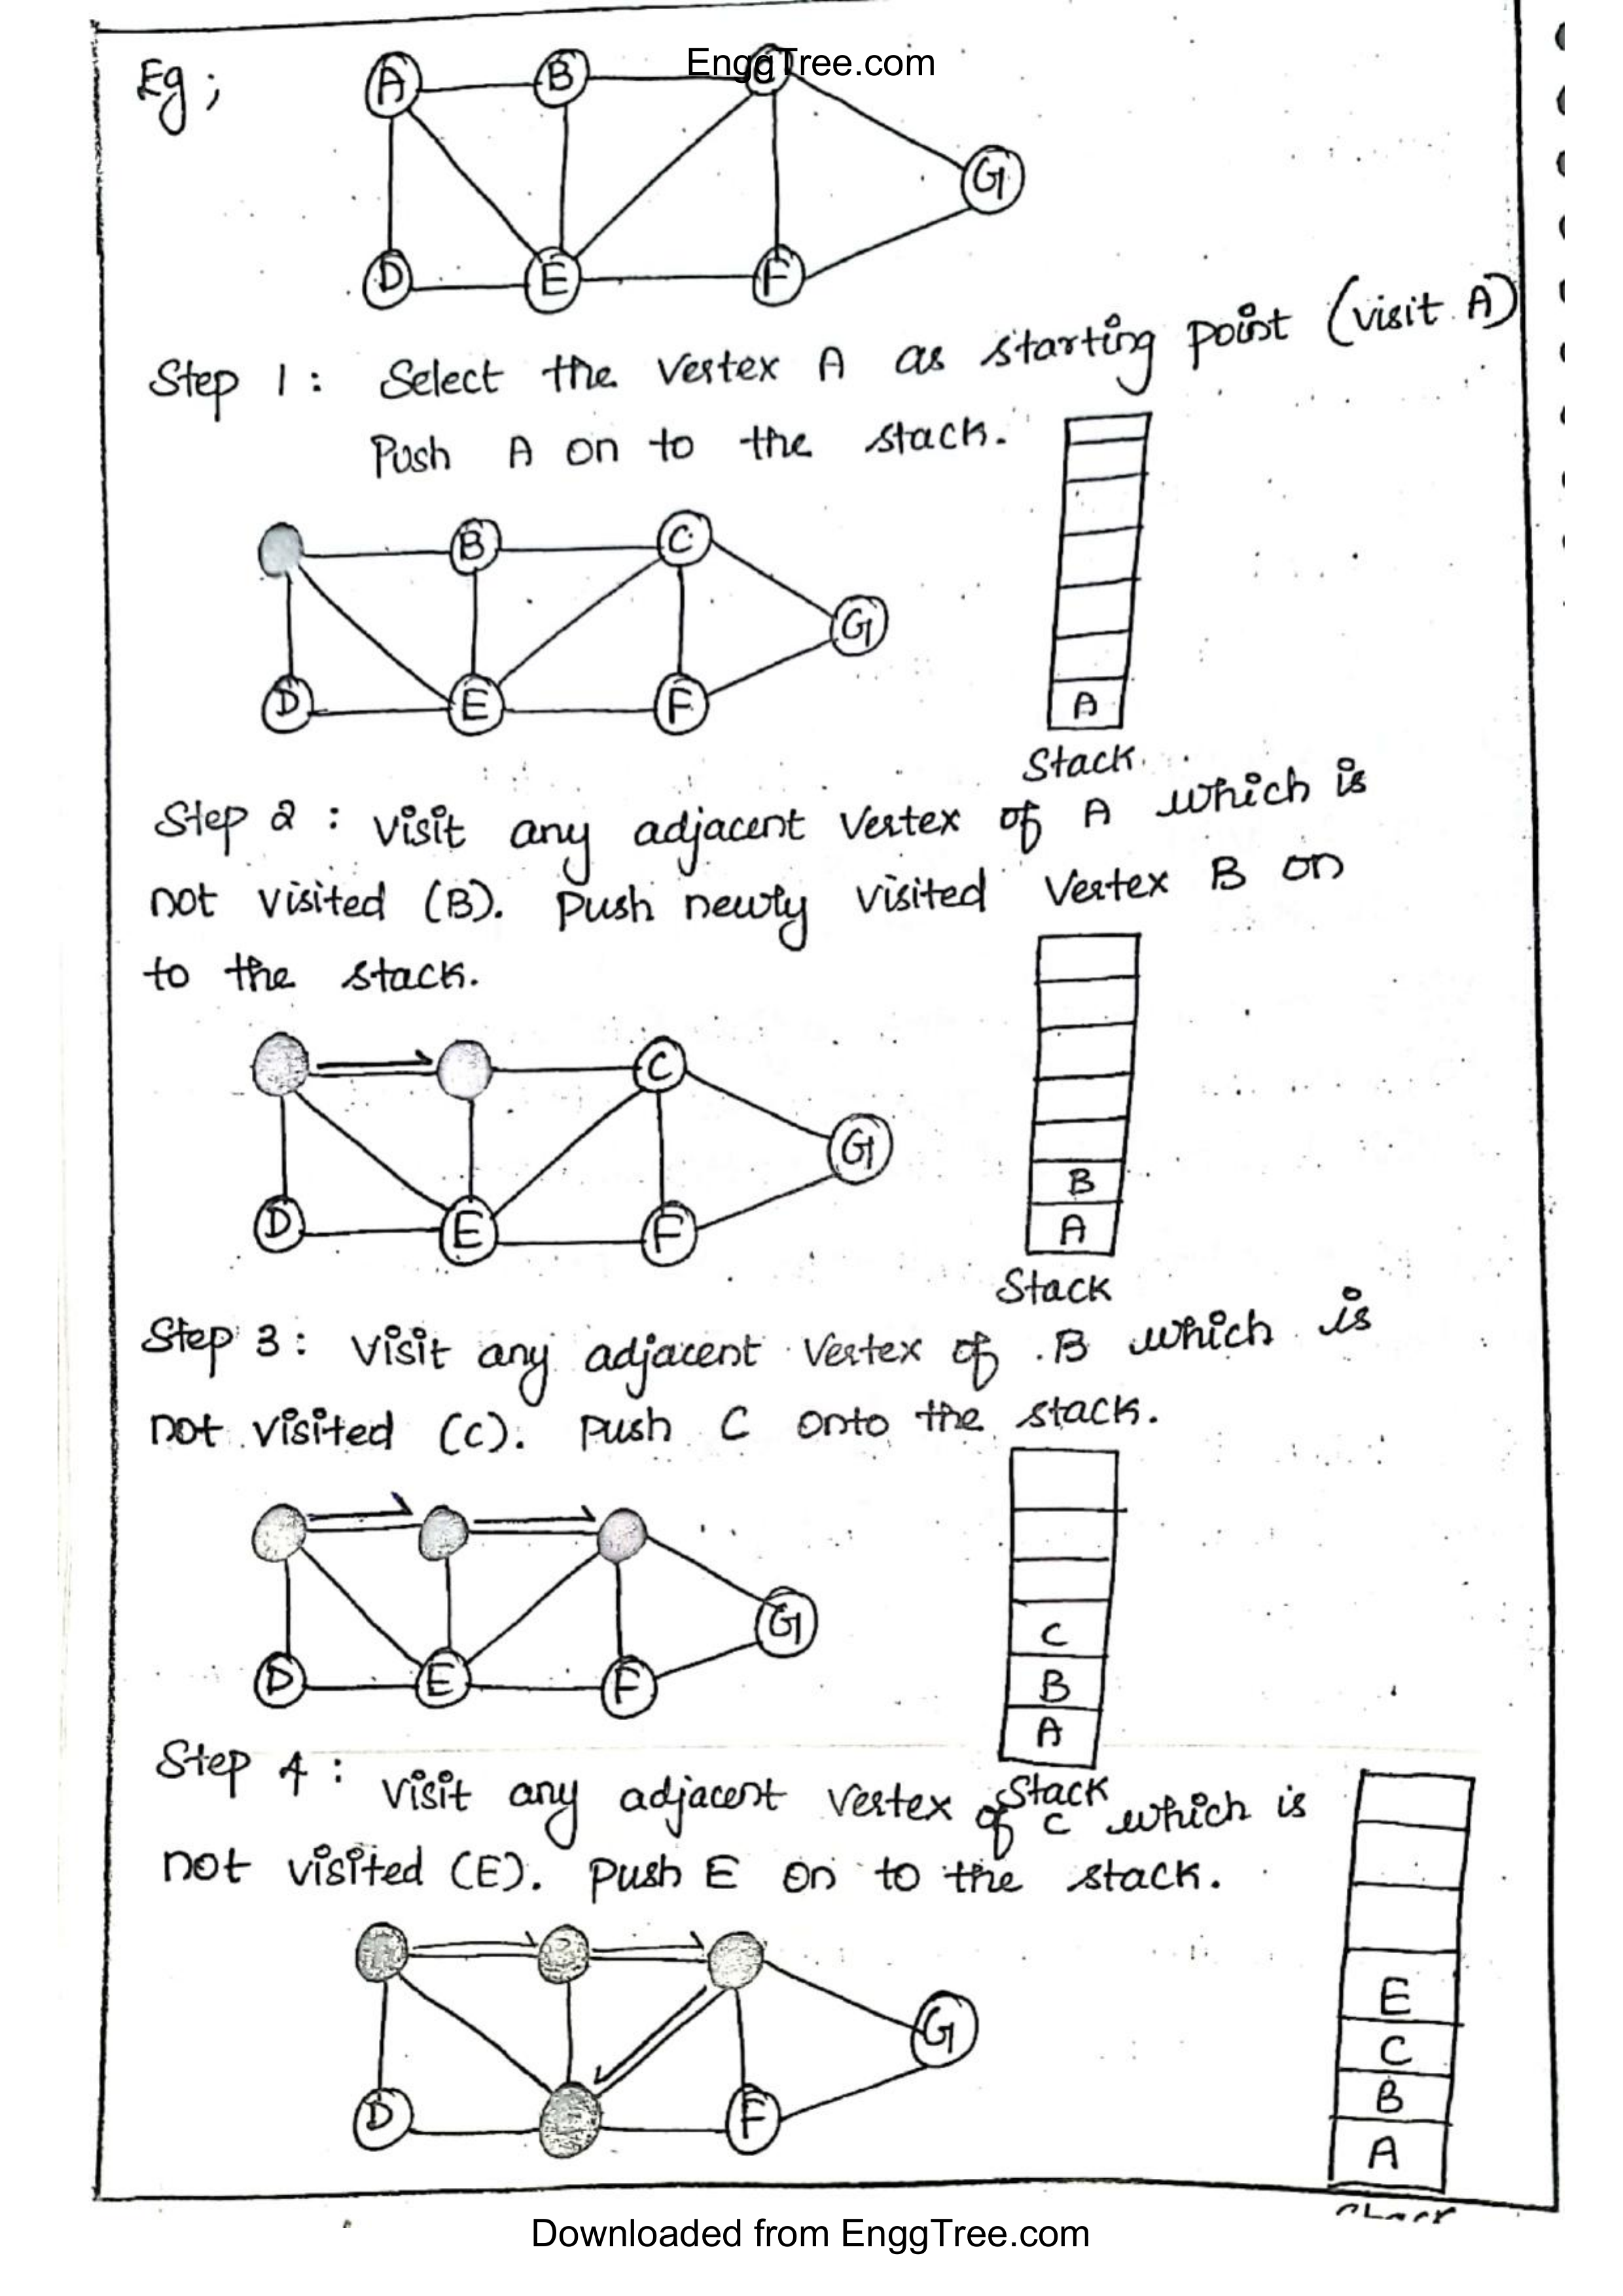 EnggTree.com
Eg;
A B
G
D E F
Step 1: Select the vertex A as starting point (visit A)
Push A on to the stack.
B C
G
D E F
A
Stack
Step 2: visit any adjacent vertex of A which is
not visited (B). Push newly visited vertex B on
to the stack.
C
G
D E F
B
A
Stack
Step 3: visit any adjacent vertex of B which is
not visited (C). Push C onto the stack.
G
D E F
C
B
A
Stack
Step 4: visit any adjacent vertex of C which is
not visited (E). Push E on to the stack.
G
D F
E
C
B
A
Downloaded from EnggTree.com